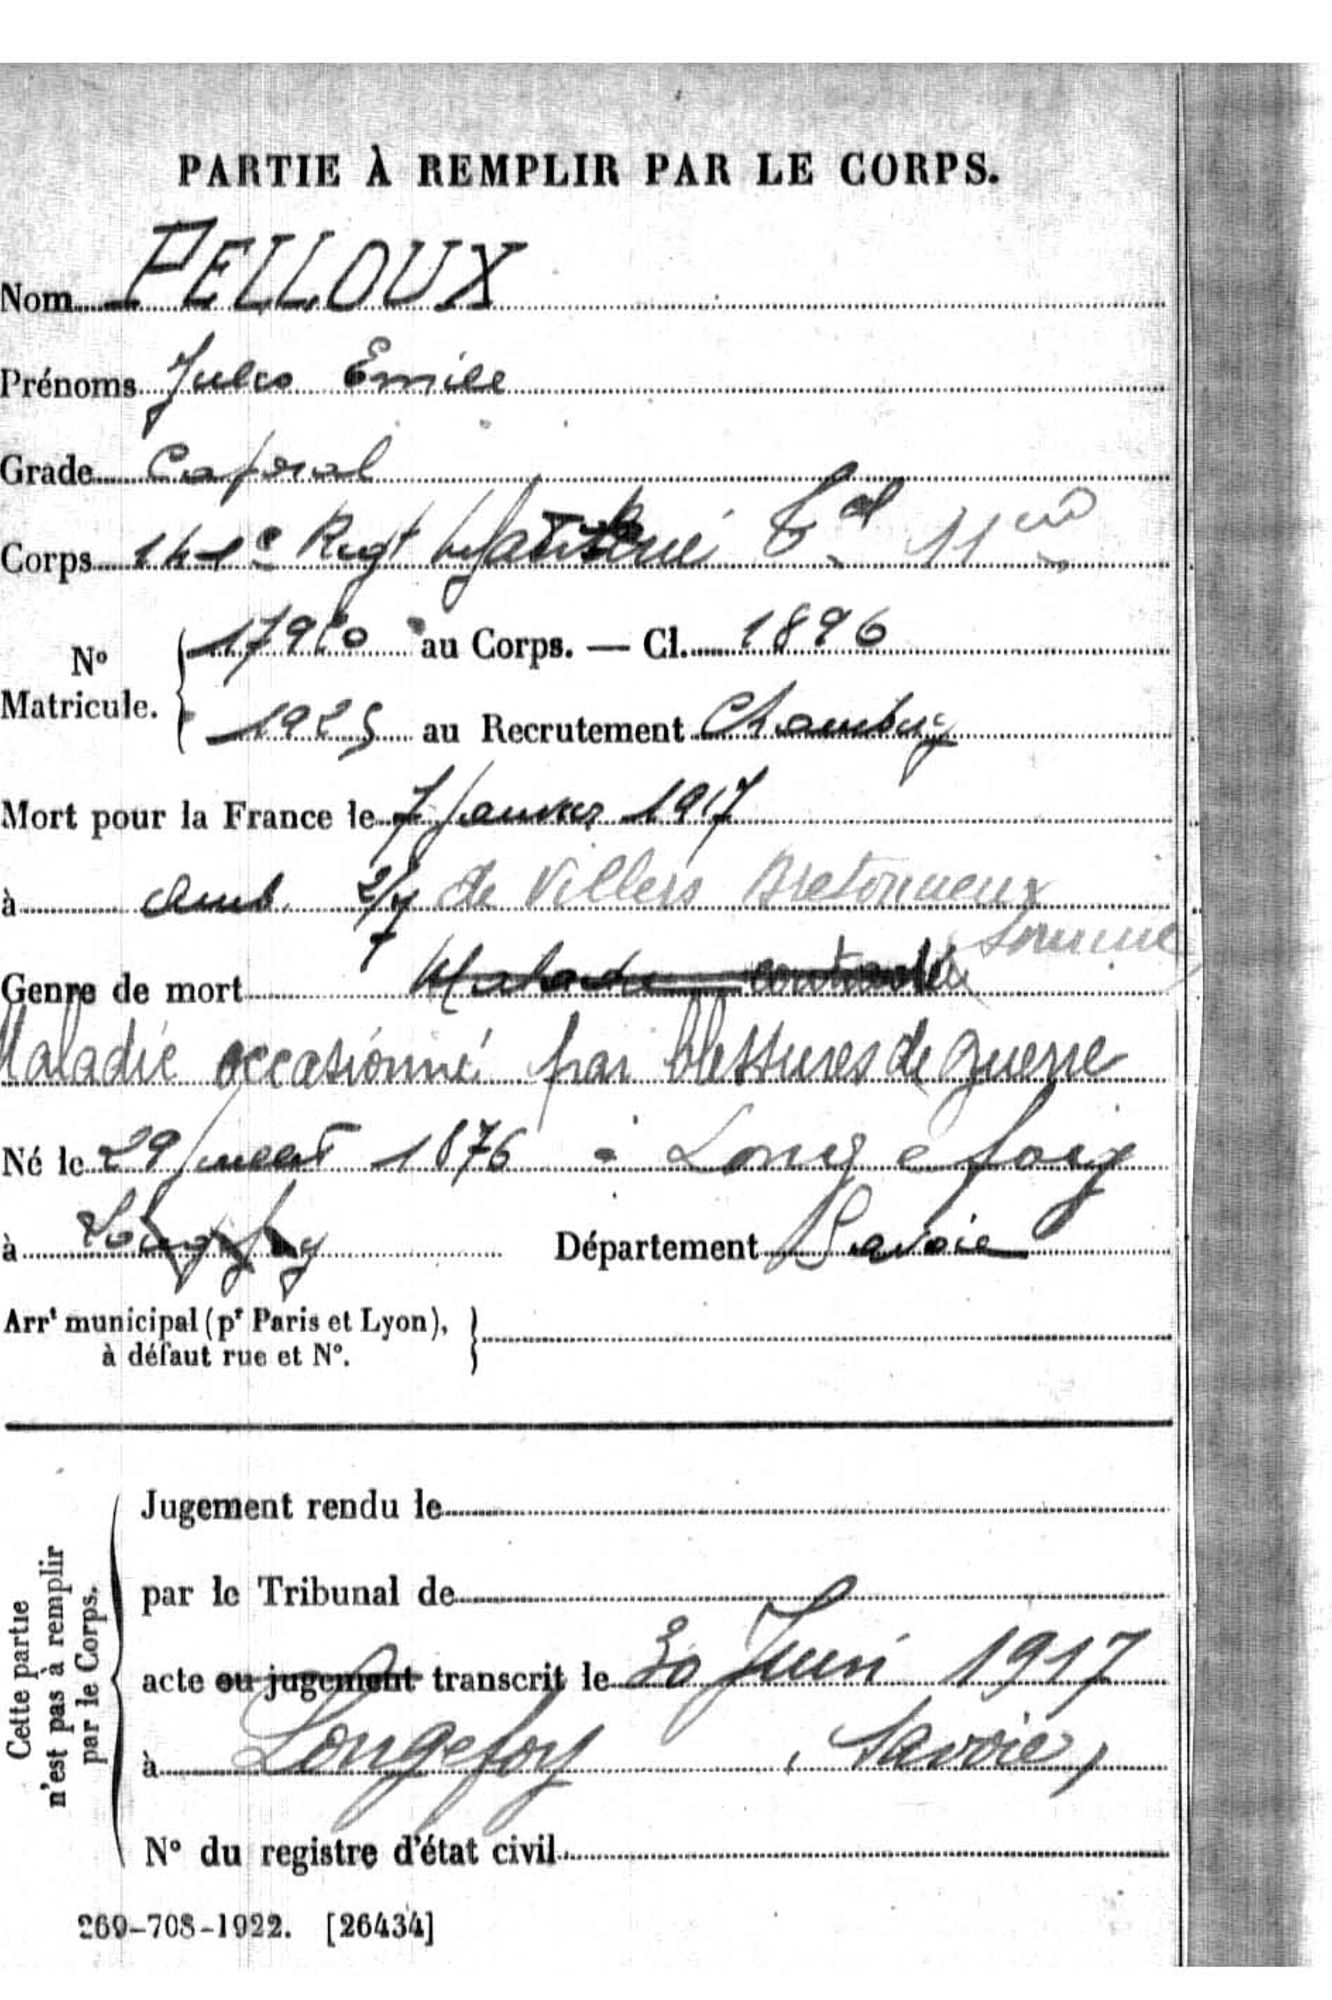 PARTIE À REMPLIR PAR LE CORPS.
Nom PELLOUX
Prénoms Jules Emile
Grade Caporal
Corps 141e Regt Infanterie
N° Matricule. au Corps. — Cl. 1896
1925 au Recrutement Chambéry
Mort pour la France le 7 Janvier 1917
à Amb. 2/7 de Villers Bretonneux
Somme
Genre de mort Maladie contractée
Maladie occasionné par blessures de guerre
Né le 29 Juillet 1876 à Longefoy
à Longefoy Département Savoie
Arrt municipal (pr Paris et Lyon),
à défaut rue et N°.
Cette partie
n'est pas à remplir
par le Corps.
Jugement rendu le
par le Tribunal de
acte ou jugement transcrit le 30 Juin 1917
à Longefoy (Savoie)
N° du registre d'état civil
269-708-1922. [26434]